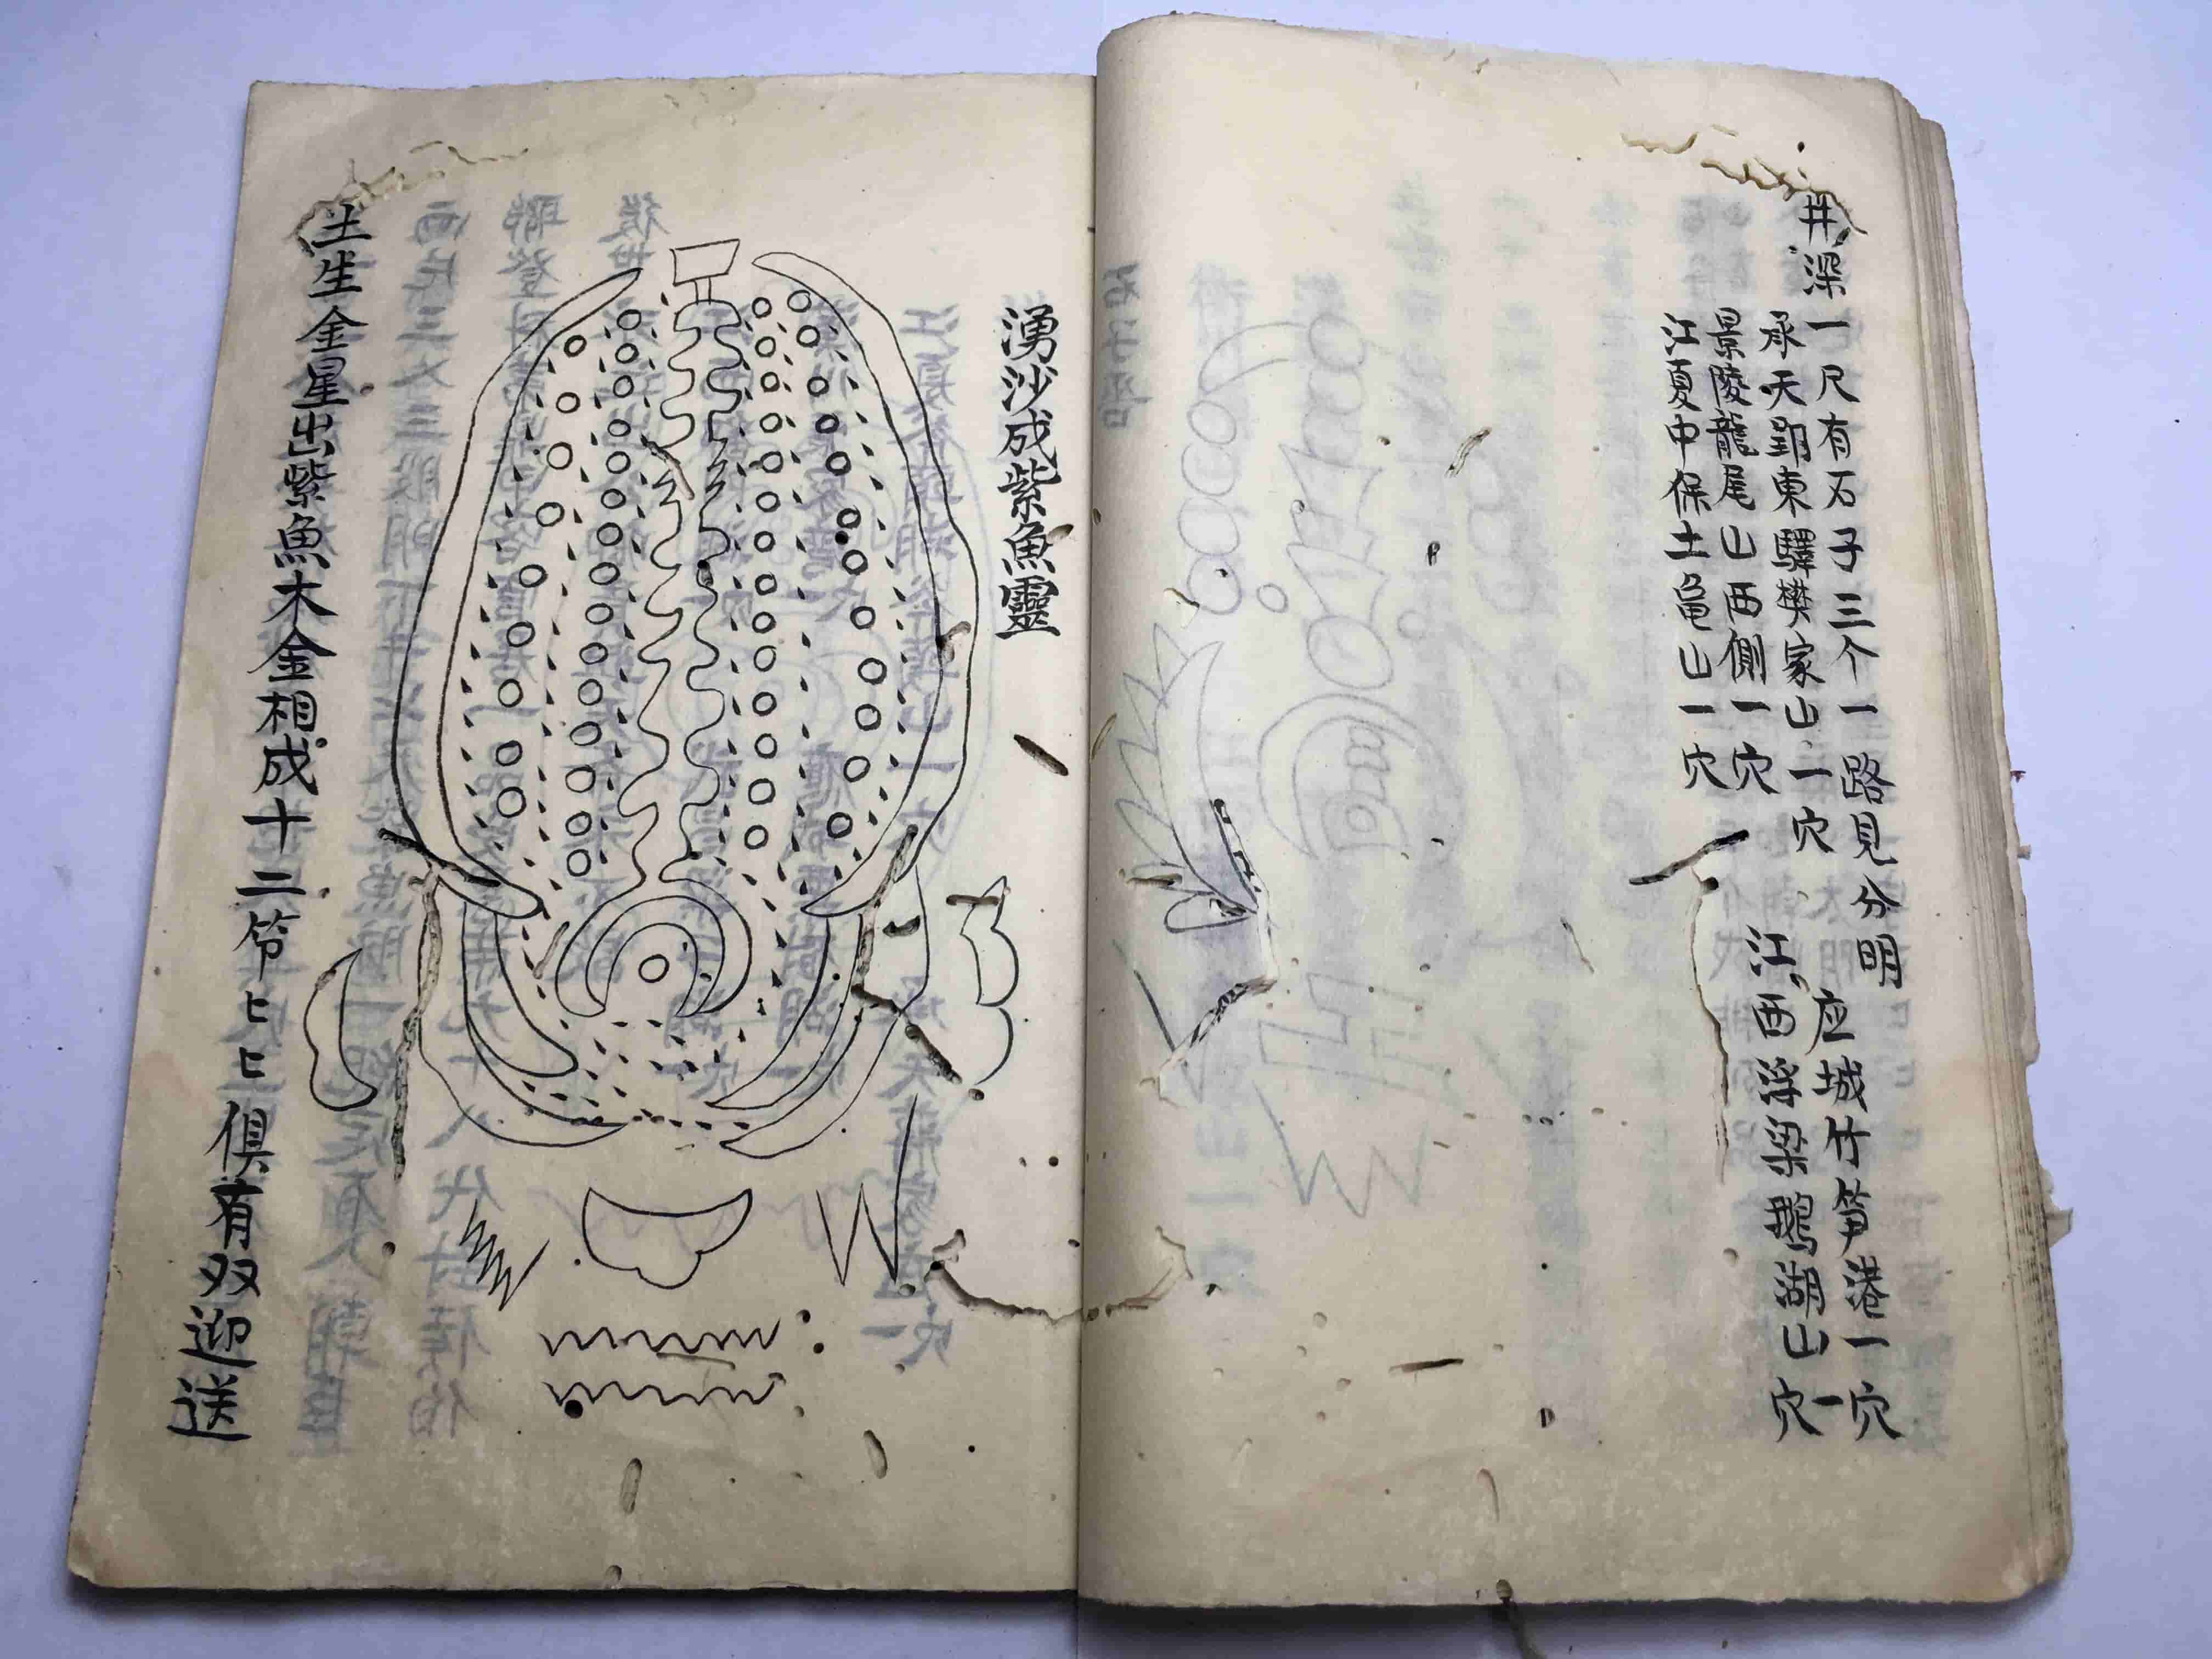 井深一尺有石子三个一路見分明
应城竹笋港一穴
承天郢東驛樊家山一穴
江西浮梁鵝湖山一穴
景陵龍尾山西側一穴
江夏中保土黾山一穴
湧沙成紫魚靈
土生金星出紫魚木金相成十二答匕匕俱有双迎送